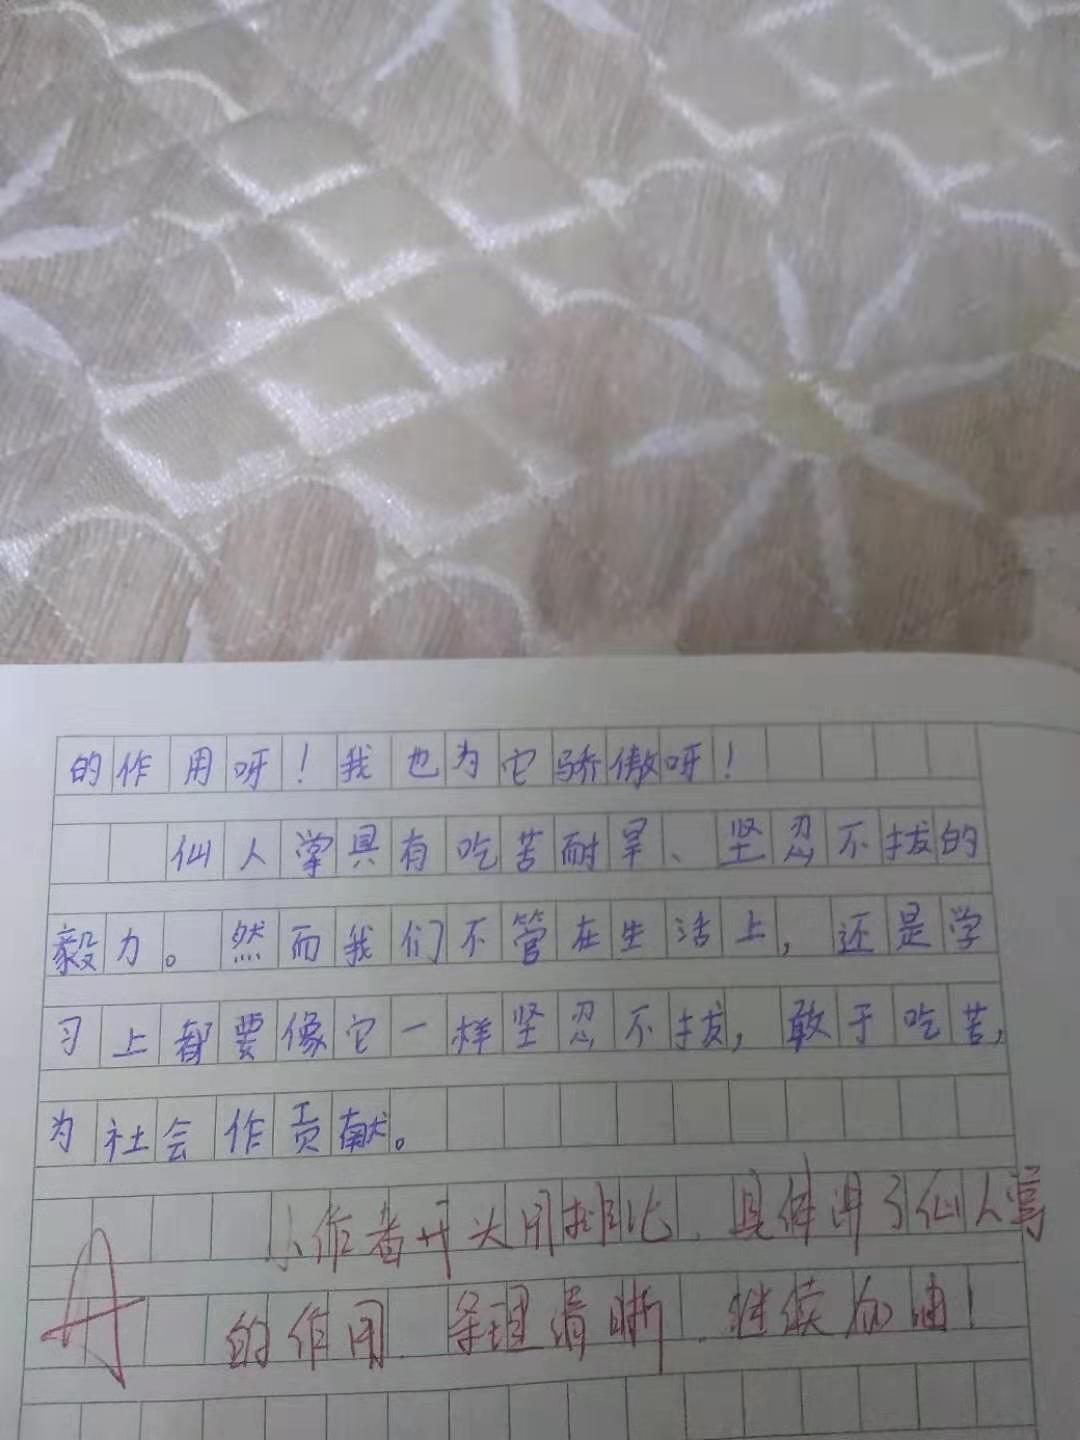 的作用呀！我也为它骄傲呀！
仙人掌具有吃苦耐旱、坚忍不拔的
毅力。然而我们不管在生活上，还是学
习上都要像它一样坚忍不拔，敢于吃苦，
为社会作贡献。
小作者开头用排比，具体讲了仙人掌
的作用，条理清晰，继续加油！
A